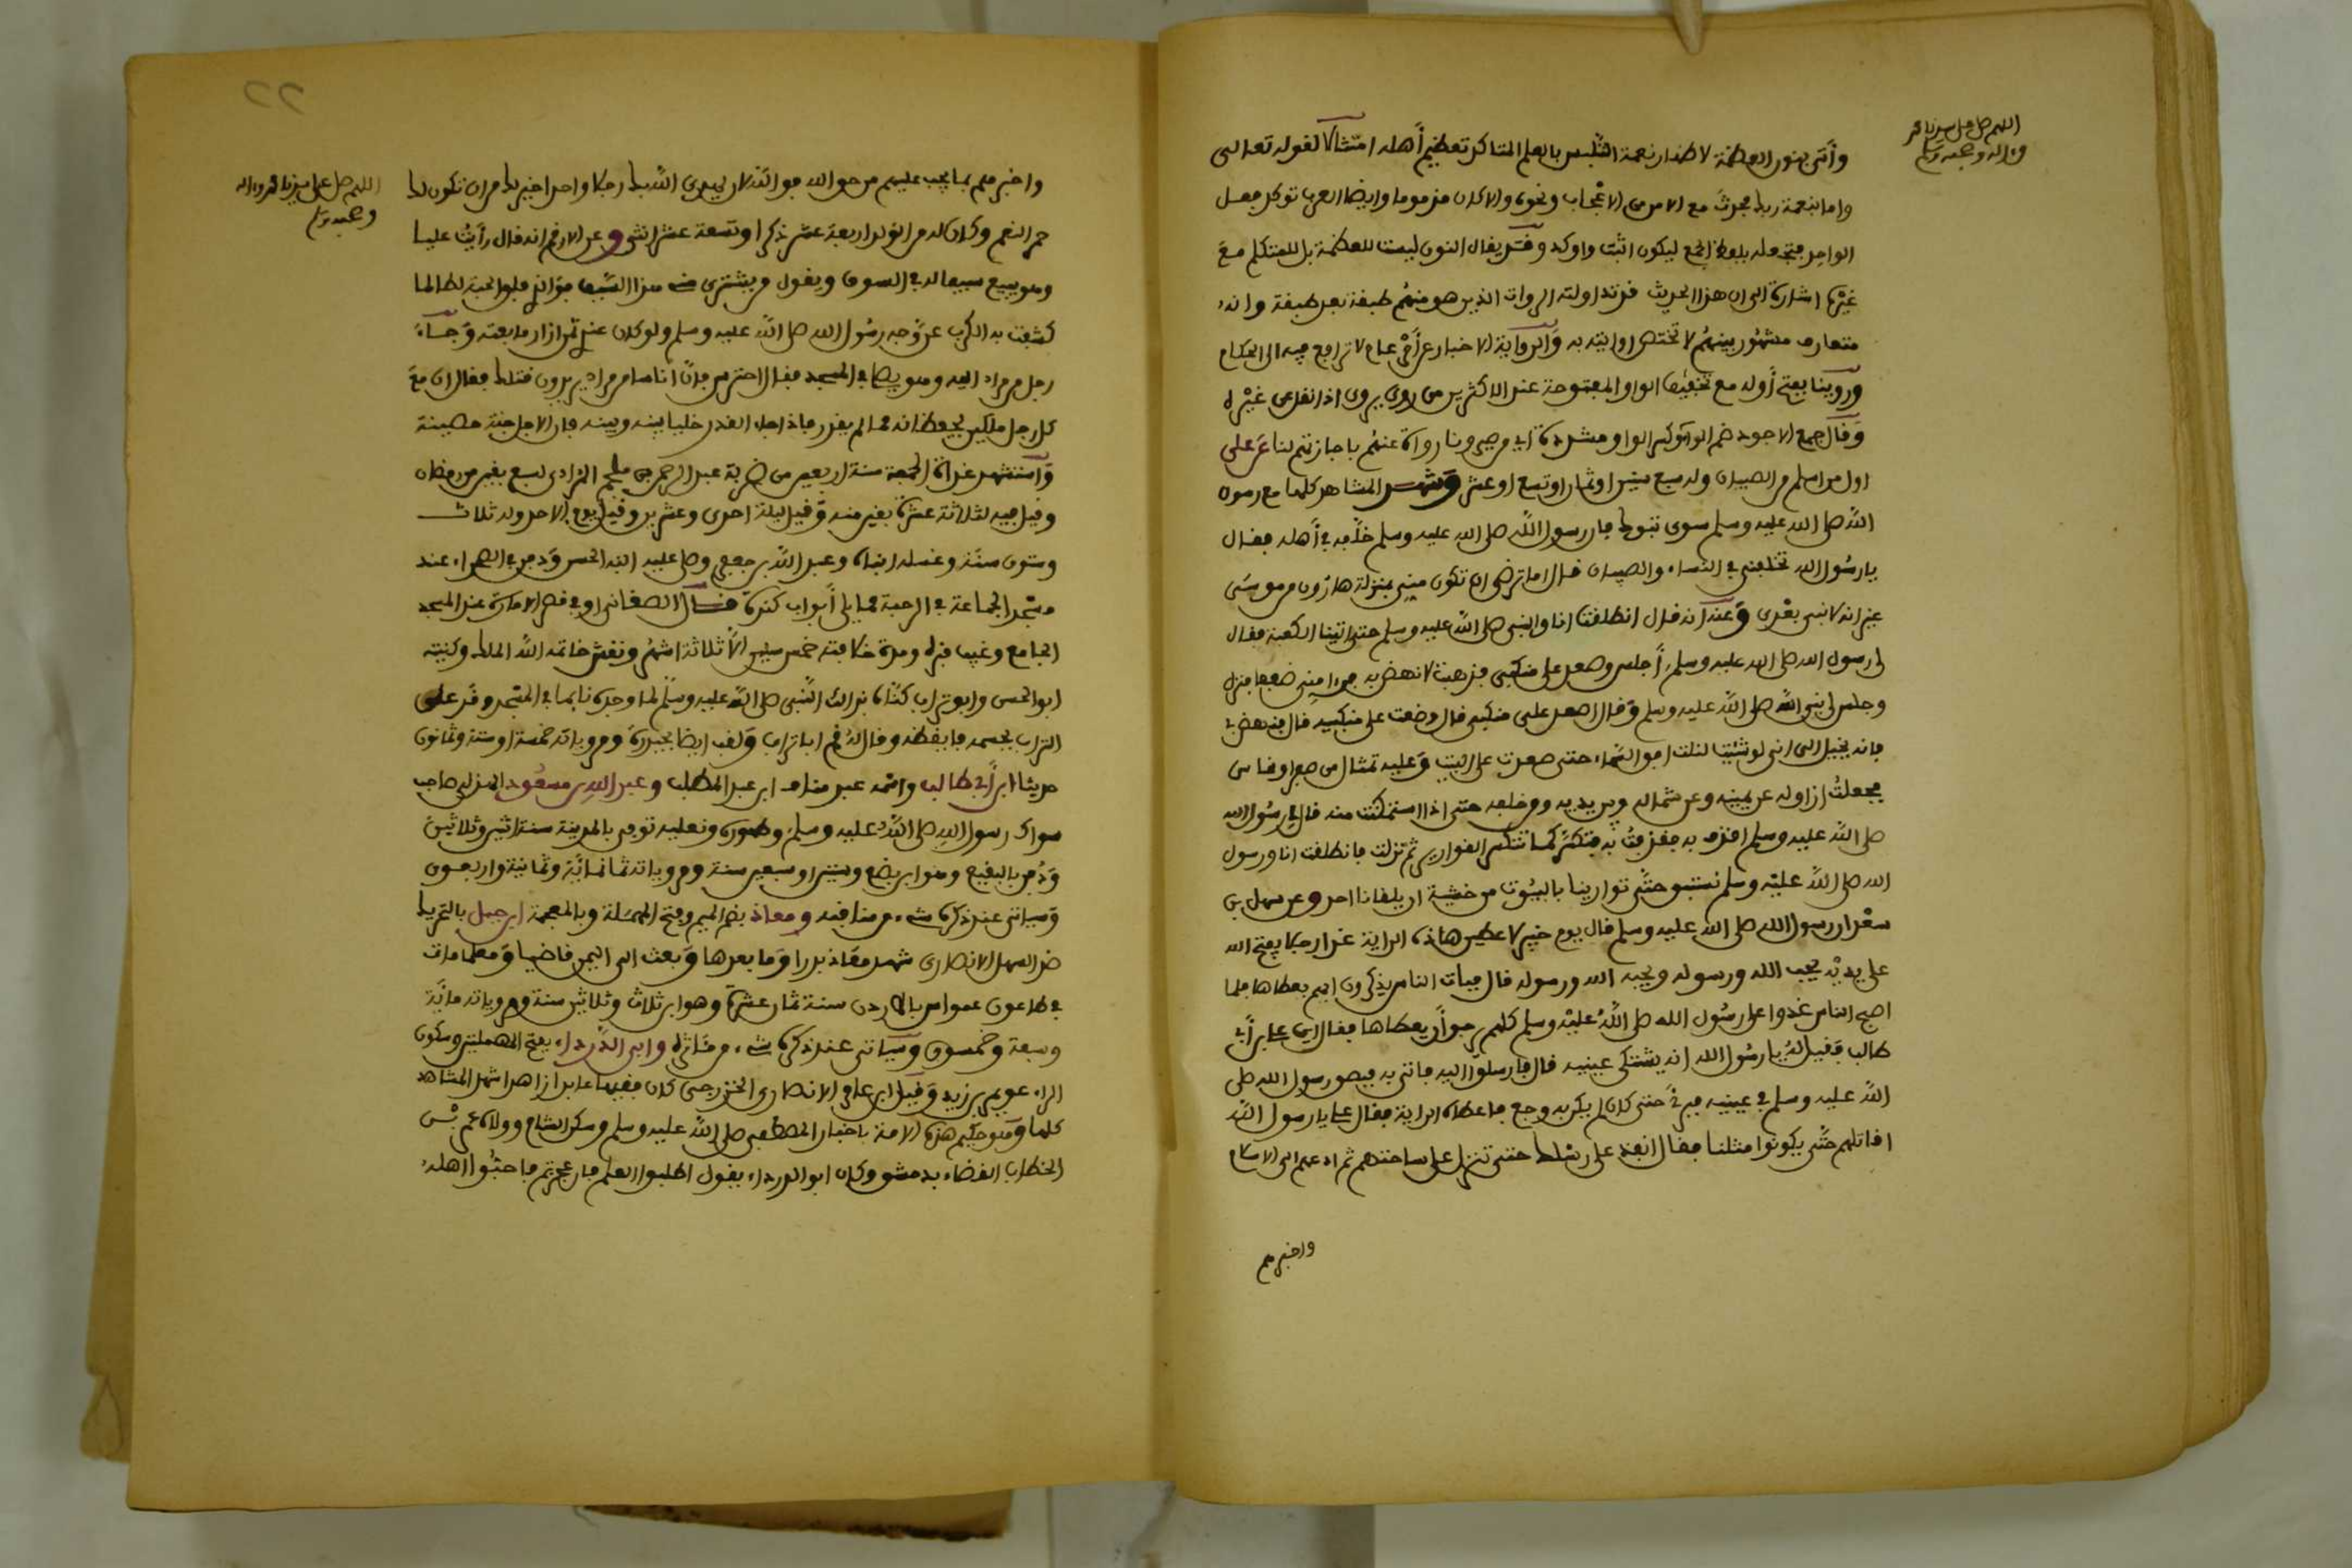 اللهم صل على سيدنا محمد
وءاله وصحبه وسلم
وأتى بنون العظمة لاظهار نعمة التلبس بالعلم المتاكد تعظيم أهله امتثالا لقوله تعالى
واما بنعمة ربك فحدث مع الامن من الاعجاب ونحوه والا كان مذموما وايضا العرب توكد فعل
الواحد فتجعله بلفظ الجمع ليكون اثبت واوكد وقد يقال النون ليست للعظمة بل للمتكلم مع
غيره اشارة الى ان هذا الحديث قد تداولته الروات الذين هو منهم طبقة بعد طبقة وانه
متعارف مشهور بينهم لا تختص روايته به والرواية الاخبار عن أمر عام لا ترافع فيه الى الحكام
وروينا بفتح أوله مع تخفيف الواو المفتوحة عند الاكثرين من روى يروى اذا نقل عن غيره
وقال جمع الاجود ضم الراء وكسر الواو مشددة اي صيرونا رواة عنهم باجازتهم لنا عن على
اول من اسلم من الصبيان وله سبع سنين او ثمان او تسع او عشر وشهد المشاهد كلها مع رسول
الله صلى الله عليه وسلم سوى تبوك فان رسول الله صلى الله عليه وسلم خلفه في أهله فقال
يا رسول الله تخلفني في النساء والصبيان قال اما ترضى ان تكون مني بمنزلة هارون من موسى
غير انه لا نبي بعدي وعنه انه قال انطلقت انا والنبي صلى الله عليه وسلم حتى اتينا الكعبة فقال
لي رسول الله صلى الله عليه وسلم أجلس وصعد على منكبي فذهبت لانهض به فرءا مني ضعفا فنزل
وجلس لي نبي الله صلى الله عليه وسلم وقال اصعد على منكبي قال فصعدت على منكبيه قال فنهض بي
فانه يخيل الي اني لو شئت لنلت افق السماء حتى صعدت على البيت وعليه تمثال من صفر او نحاس
فجعلت ازاوله عن يمينه وعن شماله وبين يديه ومن خلفه حتى اذا استمكنت منه قال لي رسول الله
صلى الله عليه وسلم اقذف به فقذفت به فتكسر كما تتكسر القوارير ثم نزلت فانطلقت انا ورسول
الله صلى الله عليه وسلم نستبق حتى توارينا بالبيوت من خشية ان يلقانا احد وعن سهل بن
سعد ان رسول الله صلى الله عليه وسلم قال يوم خيبر لاعطين هاذه الراية غدا رجلا يفتح الله
على يديه يحب الله ورسوله ويحبه الله ورسوله قال فبات الناس يذكرون ايهم يعطاها فلما
اصبح الناس غدوا على رسول الله صلى الله عليه وسلم كلهم يرجو أن يعطاها فقال اين على بن أبي
طالب فقيل له يا رسول الله انه يشتكي عينيه قال فارسلوا اليه فاتي به فبصق رسول الله صلى
الله عليه وسلم في عينيه فبرئ حتى كان لم يكن به وجع فاعطاه الراية فقال على يا رسول الله
اقاتلهم حتى يكونوا مثلنا فقال انفذ على رسلك حتى تنزل على ساحتهم ثم ادعهم الى الاسلام
واخبرهم
اللهم صل على سيدنا محمد وءاله
وصحبه وسلم
واخبرهم بما يجب عليهم من حق الله فوالله لان يهدي الله بك رجلا واحدا خير لك من ان تكون لك
حمر النعم وكان له من الولد اربعة عشر ذكرا وتسعة عشر انثى وعن الارقم انه قال رأيت عليا
وهو يبيع سيفا له في السوق ويقول من يشتري منى هذا السيف فوالذي فلق الحبة لطالما
كشفت به الكرب عن وجه رسول الله صلى الله عليه وسلم ولو كان عندي ثمن ازار ما بعته وجاء
رجل من مراد اليه وهو يصلي في المسجد فقال احترس فان اناسا من مراد يريدون قتلك فقال ان مع
كل رجل ملكين يحفظانه مما لم يقدر فاذا جاء القدر خليا بينه وبينه فان الاجل جنة حصينة
واستشهد غداة الجمعة سنة اربعين من ضربة عبد الرحمن بن ملجم المرادي لسبع بقين من رمضان
وقيل فيه لثلاثة عشرة بقين منه وقيل ليلة احدى وعشرين وقيل يوم الاحد وله ثلاث
وستون سنة وغسله ابناه وعبد الله بن جعفر وصلى عليه ابنه الحسن ودفن في الصحراء عند
مسجد الجماعة في الرحبة مما يلي أبواب كندة قال الصغاني او في قصر الامارة عند المسجد
الجامع وغيب قبره ومدة خلافته خمس سنين الا ثلاثة اشهر ونقش خاتمه الله الملك وكنيته
ابو الحسن وابو تراب كناه بذالك النبي صلى الله عليه وسلم لما وجده نائما في المسجد وقد على
التراب بجسمه فايقظه وقال له قم ابا تراب ولقب ايضا بحيدرة ومروياته خمسمائة وستة وثمانون
حديثا ابن أبي طالب واسمه عبد مناف ابن عبد المطلب وعبد الله بن مسعود الهذلي صاحب
سواك رسول الله صلى الله عليه وسلم وطهوره ونعليه توفي بالمدينة سنة اثنين وثلاثين
ودفن بالبقيع وهو ابن بضع وستين او سبعين سنة ومروياته ثمانمائة وثمانية واربعون
وسياتي عند ذكره شيء من مناقبه ومعاذ بضم الميم وفتح المهملة وبالمعجمة ابن جبل بالتحريك
ضد السهل الانصاري شهد معاذ بدرا وما بعدها وبعث الى اليمن قاضيا ومعلما مات
في طاعون عمواس بالاردن سنة ثمان عشرة وهو ابن ثلاث وثلاثين سنة ومروياته مائة
وسبعة وخمسون وسياتي عند ذكره شيء من مئاثره وابي الدرداء بفتح المهملتين وسكون
الراء عويمر بن زيد وقيل ابن عامر الانصاري الخزرجي كان فقيها عابدا زاهدا شهد المشاهد
كلها وهو حكيم هذه الامة باخبار المصطفى صلى الله عليه وسلم وسكن الشام وولاه عمر بن
الخطاب القضاء بدمشق وكان ابو الدرداء يقول اطلبوا العلم فان عجزتم فاحبوا اهله